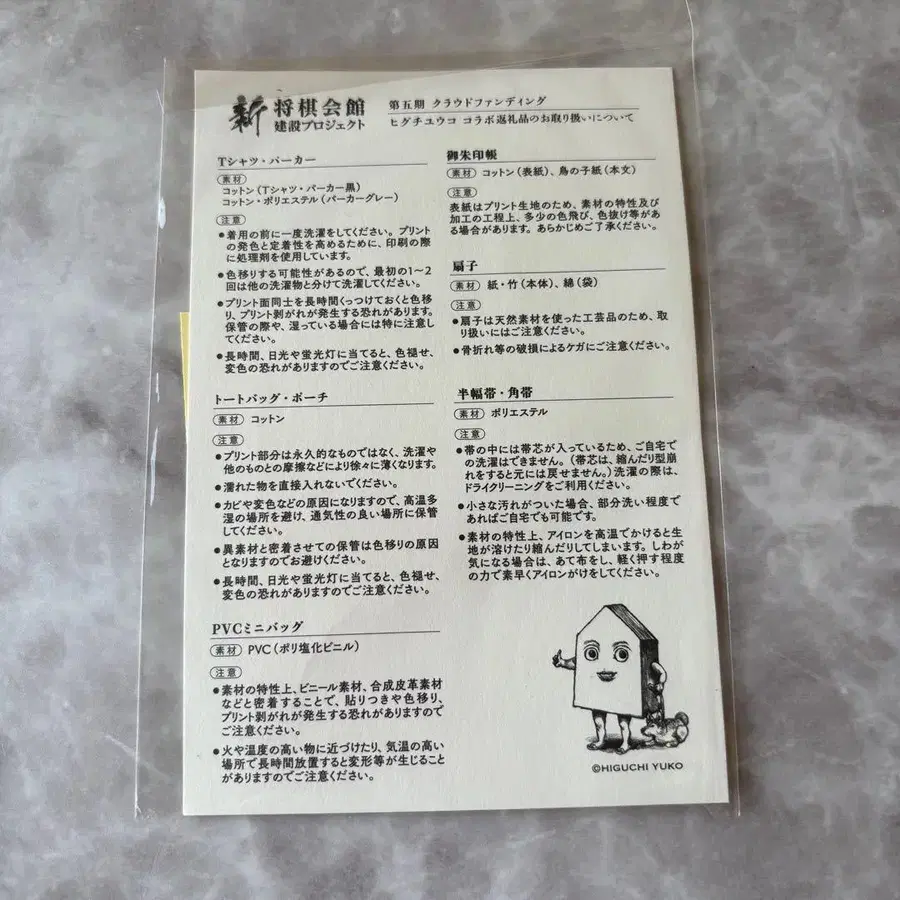 新 将棋会館
建設プロジェクト
第五期 クラウドファンディング
ヒグチユウコ コラボ返礼品のお取り扱いについて
Tシャツ・パーカー
素材
コットン(Tシャツ・パーカー黒)
コットン・ポリエステル(パーカーグレー)
注意
●着用の前に一度洗濯をしてください。プリント
の発色と定着性を高めるために、印刷の際
に処理剤を使用しています。
●色移りする可能性があるので、最初の1〜2
回は他の洗濯物と分けて洗濯してください。
●プリント面同士を長時間くっつけておくと色移
り、プリント剥がれが発生する恐れがあります。
保管の際や、湿っている場合には特に注意し
てください。
●長時間、日光や蛍光灯に当てると、色褪せ、
変色の恐れがありますのでご注意ください。
トートバッグ・ポーチ
素材 コットン
注意
●プリント部分は永久的なものではなく、洗濯や
他のものとの摩擦などにより徐々に薄くなります。
●濡れた物を直接入れないでください。
●カビや変色などの原因になりますので、高温多
湿の場所を避け、通気性の良い場所に保管
してください。
●異素材と密着させての保管は色移りの原因
となりますのでお避けください。
●長時間、日光や蛍光灯に当てると、色褪せ、
変色の恐れがありますのでご注意ください。
PVCミニバッグ
素材 PVC(ポリ塩化ビニル)
注意
●素材の特性上、ビニール素材、合成皮革素材
などと密着することで、貼りつきや色移り、
プリント剥がれが発生する恐れがありますので
ご注意ください。
●火や温度の高い物に近づけたり、気温の高い
場所で長時間放置すると変形等が生じること
がありますのでご注意ください。
御朱印帳
素材 コットン(表紙)、鳥の子紙(本文)
注意
表紙はプリント生地のため、素材の特性及び
加工の工程上、多少の色飛び、色抜け等があ
る場合があります。あらかじめご了承ください。
扇子
素材 紙・竹(本体)、綿(袋)
注意
●扇子は天然素材を使った工芸品のため、取
り扱いにはご注意ください。
●骨折れ等の破損によるケガにご注意ください。
半幅帯・角帯
素材 ポリエステル
注意
●帯の中には帯芯が入っているため、ご自宅で
の洗濯はできません。(帯芯は、縮んだり型崩
れをすると元には戻せません。)洗濯の際は、
ドライクリーニングをご利用ください。
●小さな汚れがついた場合、部分洗い程度で
あればご自宅でも可能です。
●素材の特性上、アイロンを高温でかけると生
地が溶けたり縮んだりしてしまいます。しわが
気になる場合は、あて布をし、軽く押す程度
の力で素早くアイロンがけをしてください。
©HIGUCHI YUKO